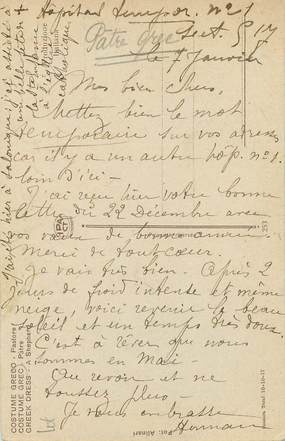 + Hôpital Tempor. n° 1
Sect. 517
Pâtre grec
le 7 Janvier
Mes bien chers,
Mettez bien le mot
temporaire sur vos adresses
car il y a un autre hôp. n° 1.
loin d'ici -
J'ai reçu hier votre bonne
lettre du 22 Décembre avec
vos vœux de bonne année
Merci de tout cœur.
Je vais très bien. Après 2
jours de froid intense et même
neige, voici revenir le beau
soleil et un temps très doux.
C'est à rêver que nous
sommes en Mai
Au revoir et ne
toussez plus -
Je vous embrasse
Hermann
J'ai été hier à Salonique j'ai assisté à
à l'église
catholique
COSTUME GRECO - Pastore
COSTUME GREC - Pâtre
GREEK DRESS - A Shepherd
Fot. Alinari
253